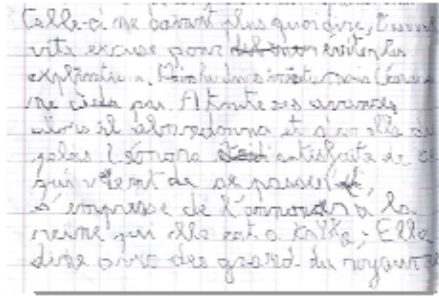 Celle-ci ne savant plus quoi dire, trouva
vita excuse pour evites les
explications.
ne céda pas. A toute ses avances
alors il abandonna et s'en alla du
palais Léonora satisfaite de ce
qui vient de se passer,
s'empresse de l'annoncer a la
reine qui elle est a table; Elle
dine avec des grand du royaume